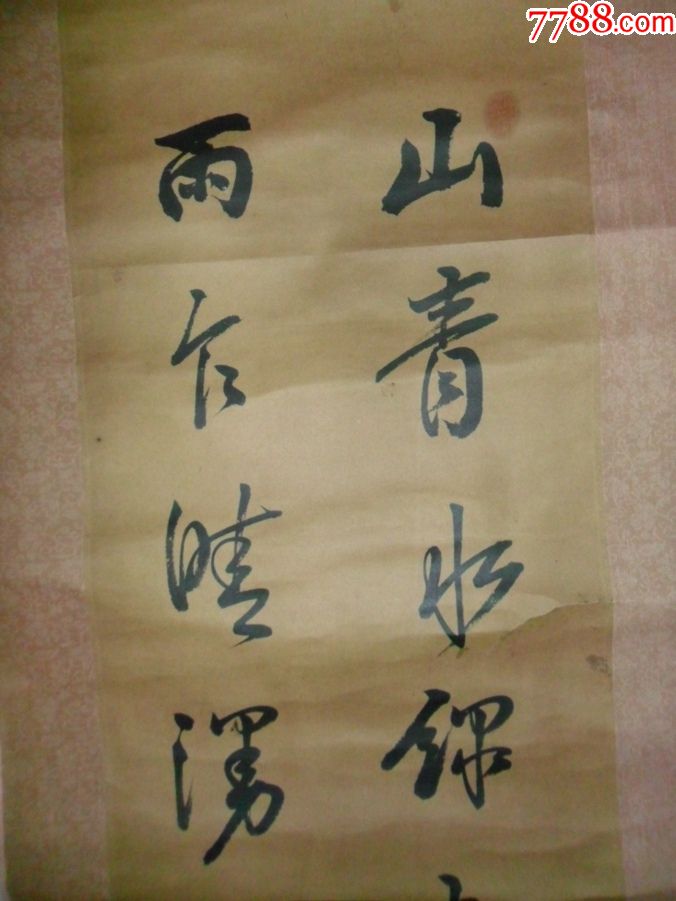 7788.com
山青水綠
雨乍晴